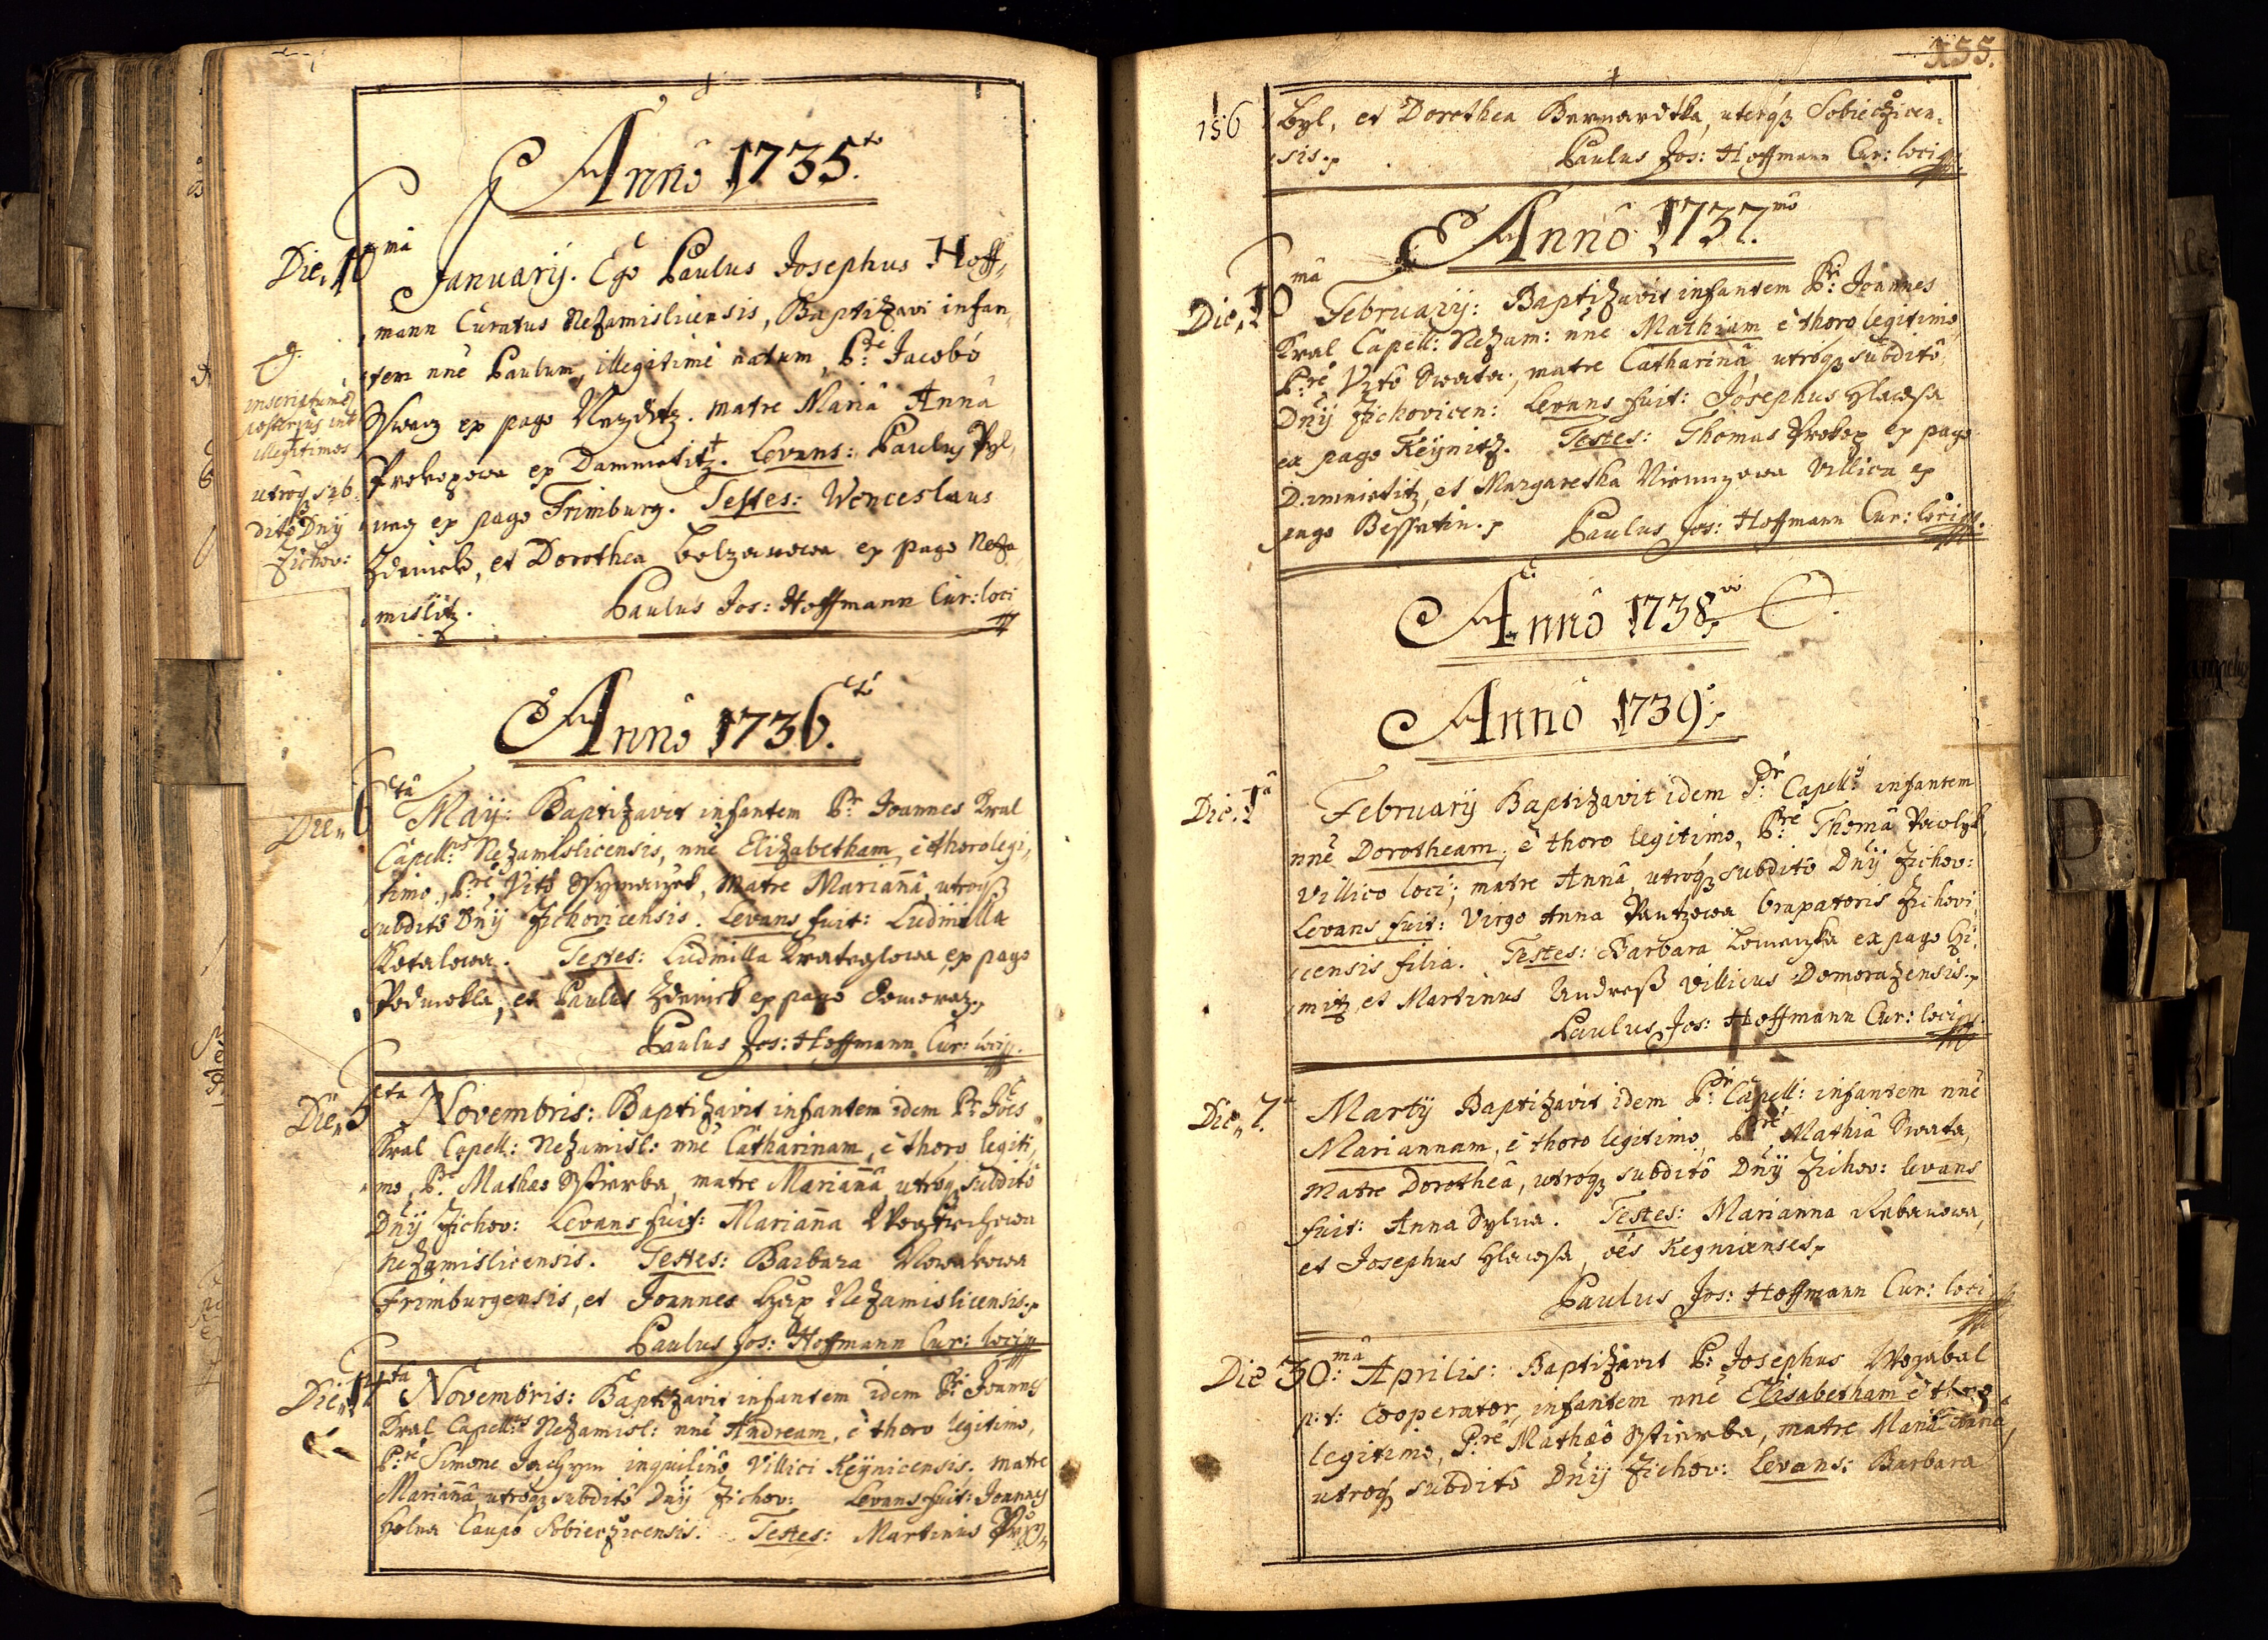 Annô 1735to
Die 10mâ
Januarÿ. Ego Paulus Josephus Hoff,
mann Curatus Nezamislicensis, Baptizavi infan,
tem nne Paulum, illegitimè natum, P:re Jacobô
ex pago Nezditz. matre Mariâ Annâ
Prokopowa ex Dammietitz. Levans: Paulus
ex pago Frimburg. Testes: Wenceslaus
Zdenick, et Dorothea Bolzanowa ex pago Neza,
mislitz. Paulus Jos: Hoffmann Cur: loci
inscriptum
posterius int
illegitimos
utroq sub,
ditô Dnÿ
Zichov:
Annô 1736tô
Die 6tâ
Maÿ: Baptizavit infantem Pr Joannes Kral
Capell:us Nezamislicensis, nne Elizabetham, è thoro legi,
timo, P:re Vitô, Matre Mariañâ, utroqз
subditô Dnÿ Zichovicensis. Levans fuit: Ludmilla
Kotalowa. Testes: Ludmilla Krateglowa ex pago
Podmokla, et Paulus Zdenick ex pago Domoraz.
Paulus Jos: Hoffmann Cur: loci
Die 5ta
Novembris: Baptizavit infantem idem Pr Joes
Kral Capell: Nezamisl: nne Catharinam, è thoro legiti,
mo, P:re Mathæo, matre Mariañâ, utroqз subditô
Dnÿ Zichov: Levans fuit: Mariaña
Nezamislicensis. Testes: Barbara Nowakowa
Frimburgensis, et Joannes Nezamislicensis.
Paulus Jos: Hoffmann Cur: loci
Die 14ta
Novembris: Baptizavit infantem idem P:r Joannes
Kral Capell:us Nezamisl: nne Andream, è thoro legitimo,
P:re Simone Jachym inquilinô Villici Keÿnicensis, matre
Mariañâ, utroqз subditô Dnÿ Zichov: Levans fuit: Joannes
Holna Caupo Sobieczicensis. Testes: Martinus
155.
156
byl, et Dorothea Bernardtka, uterqз Sobieczicen,
sis. Paulus Jos: Hoffmann Cur: loci
Annô 1737mô
Die 10mâ
Februarÿ: Baptizavit infantem P:r Joannes
Kral Capell: Nezam: nne Mathiam è thoro legitimo,
P:re Vitô Swata, matre Catharinâ, utroqз subditô
Dnÿ Zichovicen: Levans fuit: Josephus Hlawsa
ex pago Keÿnitz. Testes: Thomas Prokop ex pago
Dammietitz, et Margaretha Villica ex
pago Bessetin. Paulus Jos: Hoffmann Cur: loci
Annô 1738vo
Annô 1739o
Die 1â
Februarÿ Baptizavit idem P:r Capell:9 infantem
nne Dorotheam, è thoro legitimo, P:re Thomâ Pawlyk
Villico loci; matre Annâ, utroqз subditô Dnÿ Zichov:
Levans fuit: Virgo Anna Pantzowa braxatoris Zichovi,
censis filia. Testes: Barbara ex pago Hi,
mitz et Martinus Andreß Villicus Domorazensis.
Paulus Jos: Hoffmann Cur: loci
Die 7.
Martÿ Baptizavit idem P:r Capell: infantem nne
Mariannam, è thoro legitimo, P:re Mathiâ Swata,
matre Dorotheâ, utroqз subditô Dnÿ Zichov: levans
fuit: Anna Sylna. Testes: Marianna Rebanowa,
et Josephus Hlawsa, oes Kegnicenses.
Paulus Jos: Hoffmann Cur: loci
Die 30:mâ Aprilis: Baptizavit P: Josephus Wogabal
p: t: Cooperator, infantem nne Elisabetham è thoro
legitimo, P:re Mathæô, matre Mariâ Annâ,
utroqз subditô Dnÿ Zichov: Levans: Barbara